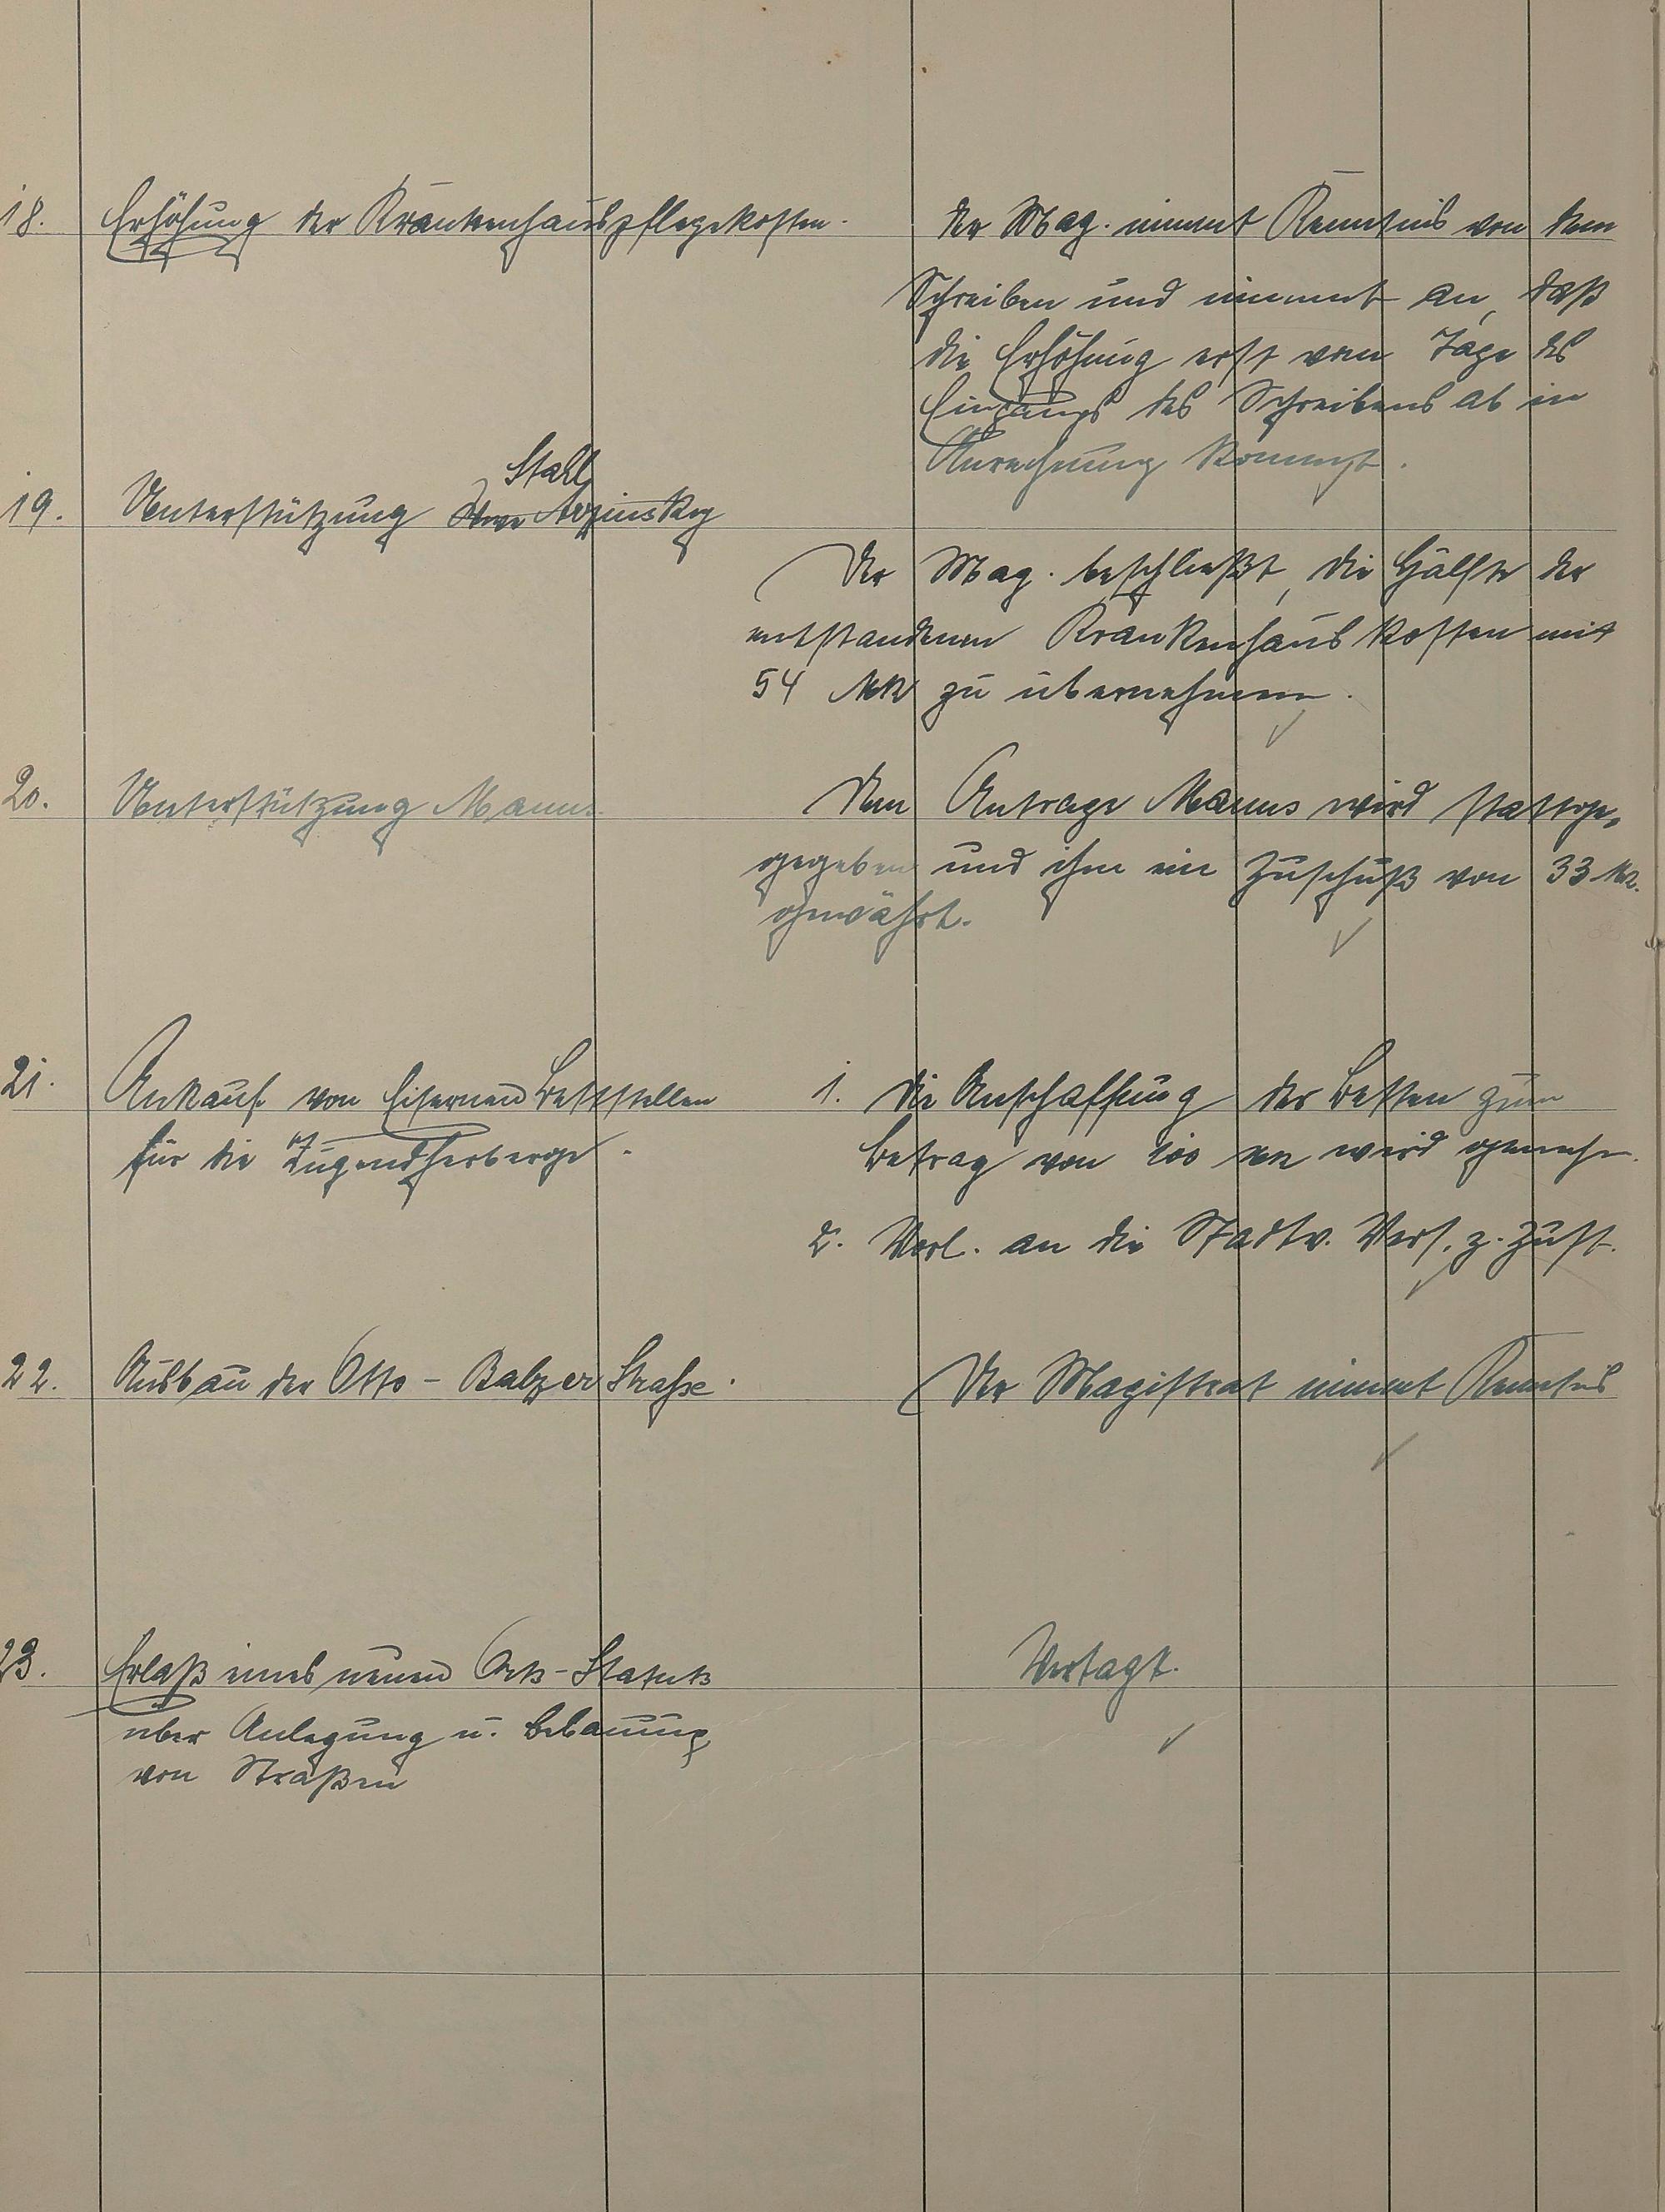 18. Erhöhung der Krankenhauspflegekosten.
Der Mag. nimmt Kenntnis von dem
Schreiben und nimmt an, daß
die Erhöhung erst vom Tage des
Eingangs des Schreibens ab in
Anrechnung kommt.
Stadt
19. Unterstützung
Der Mag. beschließt, die Hälfte der
entstandenen Krankenhauskosten mit
54 Mk zu übernehmen.
20. Unterstützung Manns
Dem Antrage Manns wird stattge-
gegeben und ihm ein Zuschuß von 33 Mk.
gewährt.
21. Ankauf von Eisernen Bettstellen
für die Jugendherberge.
1. Die Anschaffung der Betten zum
Betrag von 100 Mk wird genehm.
2. Vorl. an die Stadtv. Vers. z. Zust.
22. Ausbau der Otto-Balzer Straße.
Der Magistrat nimmt Kenntnis
23. Erlaß eines neuen Orts-Statuts
über Anlegung u. Bebauung
von Straßen
Vertagt.